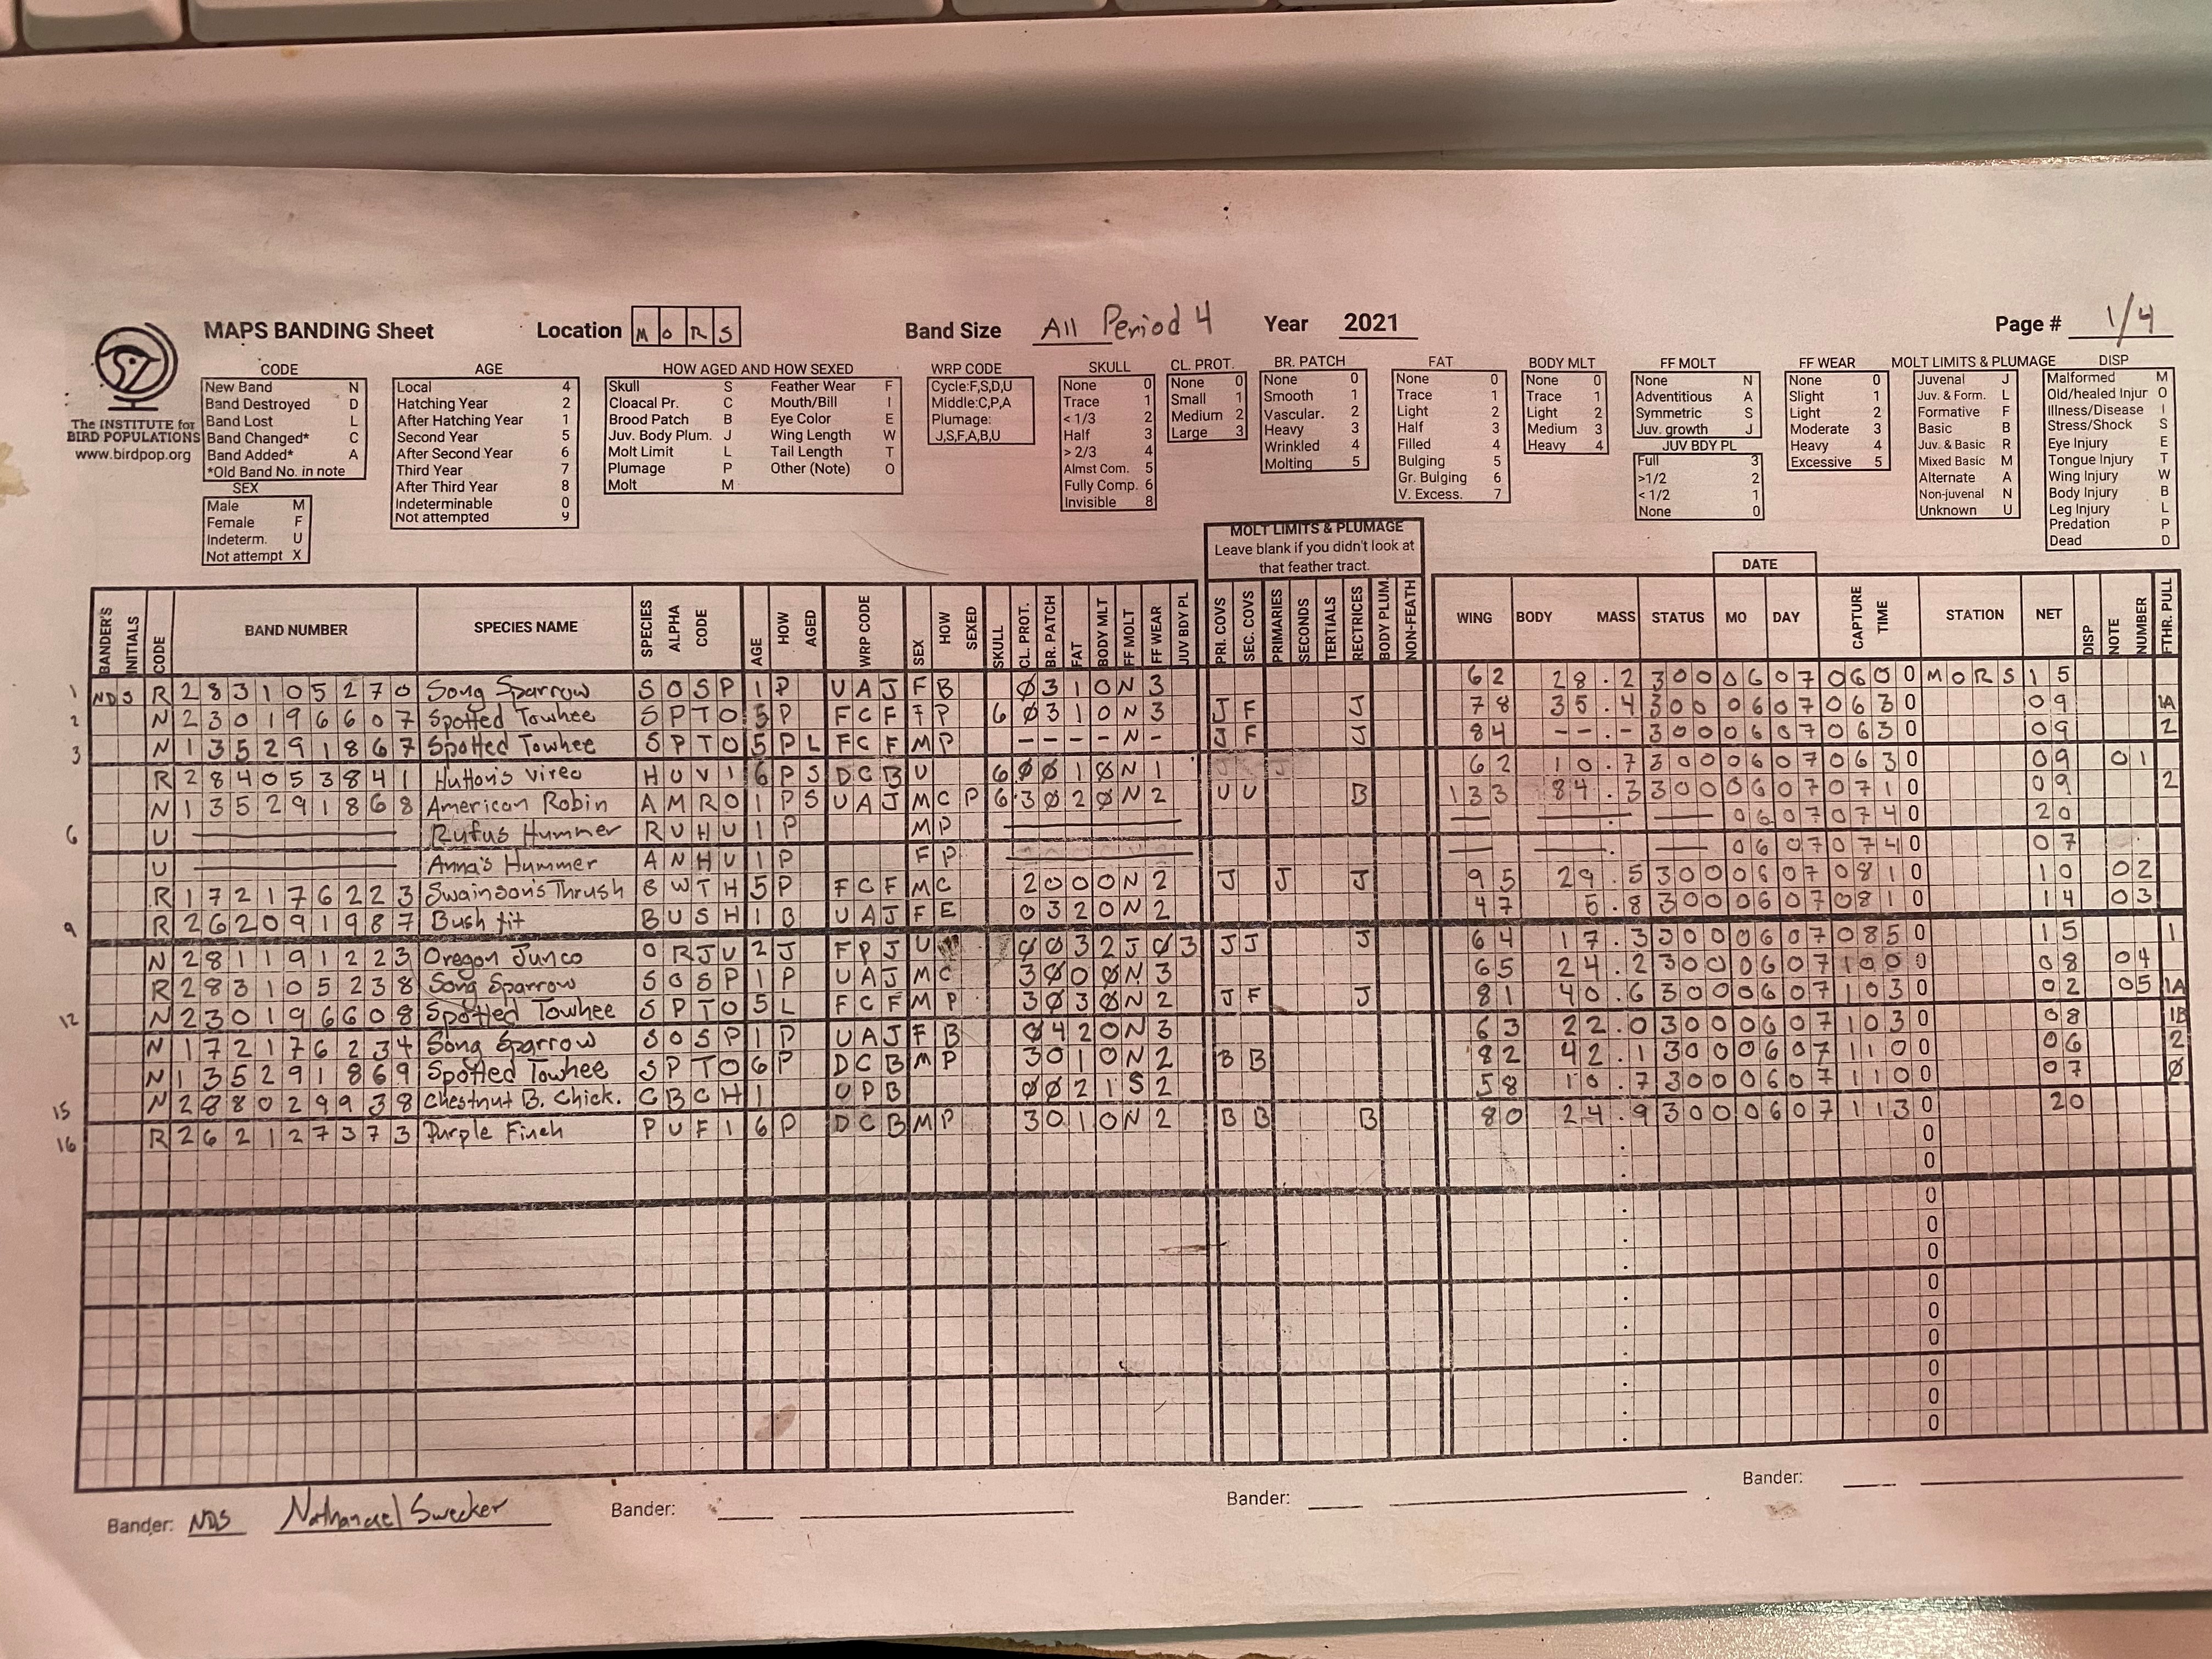 MAPS BANDING Sheet Location M O R S Band Size All Period 4 Year 2021 Page # 1/4
The INSTITUTE for
BIRD POPULATIONS
www.birdpop.org
CODE
New Band N
Band Destroyed D
Band Lost L
Band Changed* C
Band Added* A
*Old Band No. in note
SEX
Male M
Female F
Indeterm. U
Not attempt X
AGE
Local 4
Hatching Year 2
After Hatching Year 1
Second Year 5
After Second Year 6
Third Year 7
After Third Year 8
Indeterminable 0
Not attempted 9
HOW AGED AND HOW SEXED
Skull S Feather Wear F
Cloacal Pr. C Mouth/Bill I
Brood Patch B Eye Color E
Juv. Body Plum. J Wing Length W
Molt Limit L Tail Length T
Plumage P Other (Note) O
Molt M
WRP CODE
Cycle:F,S,D,U
Middle:C,P,A
Plumage:
J,S,F,A,B,U
SKULL
None 0
Trace 1
< 1/3 2
Half 3
> 2/3 4
Almst Com. 5
Fully Comp. 6
Invisible 8
CL. PROT.
None 0
Small 1
Medium 2
Large 3
BR. PATCH
None 0
Smooth 1
Vascular. 2
Heavy 3
Wrinkled 4
Molting 5
FAT
None 0
Trace 1
Light 2
Half 3
Filled 4
Bulging 5
Gr. Bulging 6
V. Excess. 7
BODY MLT
None 0
Trace 1
Light 2
Medium 3
Heavy 4
FF MOLT
None N
Adventitious A
Symmetric S
Juv. growth J
JUV BDY PL
Full 3
>1/2 2
< 1/2 1
None 0
FF WEAR
None 0
Slight 1
Light 2
Moderate 3
Heavy 4
Excessive 5
MOLT LIMITS & PLUMAGE
Juvenal J
Juv. & Form. L
Formative F
Basic B
Juv. & Basic R
Mixed Basic M
Alternate A
Non-juvenal N
Unknown U
DISP
Malformed M
Old/healed Injur O
Illness/Disease I
Stress/Shock S
Eye Injury E
Tongue Injury T
Wing Injury W
Body Injury B
Leg Injury L
Predation P
Dead D
MOLT LIMITS & PLUMAGE
Leave blank if you didn't look at
that feather tract.
DATE
BANDER'S INITIALS CODE BAND NUMBER SPECIES NAME SPECIES ALPHA CODE AGE HOW AGED WRP CODE SEX HOW SEXED SKULL CL. PROT. BR. PATCH FAT BODY MLT FF MOLT FF WEAR JUV BDY PL PRI. COVS SEC. COVS PRIMARIES SECONDS TERTIALS RECTRICES BODY PLUM. NON-FEATH WING BODY MASS STATUS MO DAY CAPTURE TIME STATION NET DISP NOTE NUMBER FTHR. PULL
1 NDS R 283105270 Song Sparrow SOSP 1 P UAJ F B Ø 3 1 0 N 3 62 28.2 300 06 07 060 0 MORS 15
2 N 230196607 Spotted Towhee SPTO 5 P FCF F P 6 Ø 3 1 0 N 3 J F J 78 35.4 300 06 07 063 0 09 1A
3 N 135291867 Spotted Towhee SPTO 5 P L FCF M P - - - - N - J F J 84 - - . - 300 06 07 063 0 09 2
R 284053841 Hutton's Vireo HUVI 6 P S DCB U 6 Ø Ø 1 Ø N 1 J J 62 10.7 300 06 07 063 0 09 01
N 135291868 American Robin AMRO 1 P S UAJ M C P 6 3 Ø 2 Ø N 2 U U B 133 84.3 300 06 07 071 0 09 2
6 U — Rufus Hummer RUHU 1 P M P — — — . — 06 07 074 0 20
U — Anna's Hummer ANHU 1 P F P — — — . — 06 07 074 0 07
R 172176223 Swainson's Thrush SWTH 5 P FCF M C 2 0 0 0 N 2 J J J 95 29.5 300 06 07 081 0 10 02
9 R 262091987 Bush tit BUSH 1 B UAJ F E 0 3 2 0 N 2 47 5.8 300 06 07 081 0 14 03
N 281191223 Oregon Junco ORJU 2 J FPJ U Ø 0 3 2 J Ø 3 J J J 64 17.3 300 06 07 085 0 15 1
R 283105238 Song Sparrow SOSP 1 P UAJ M C 3 Ø 0 Ø N 3 65 24.2 300 06 07 100 0 08 04
12 N 230196608 Spotted Towhee SPTO 5 L FCF M P 3 Ø 3 Ø N 2 J F J 81 40.6 300 06 07 103 0 02 05 1A
N 172176234 Song Sparrow SOSP 1 P UAJ F B Ø 4 2 0 N 3 63 22.0 300 06 07 103 0 08 1B
N 135291869 Spotted Towhee SPTO 6 P DCB M P 3 0 1 0 N 2 B B 82 42.1 300 06 07 110 0 06 2
15 N 288029938 Chestnut B. Chick. CBCH 1 UPB Ø Ø 2 1 S 2 58 10.7 300 06 07 110 0 07 Ø
16 R 262127373 Purple Finch PUFI 6 P DCB M P 3 0 1 0 N 2 B B B 80 24.9 300 06 07 113 0 20
0
0
0
0
0
0
0
0
0
0
0
Bander: NDS Nathanael Swecker Bander: Bander: Bander: